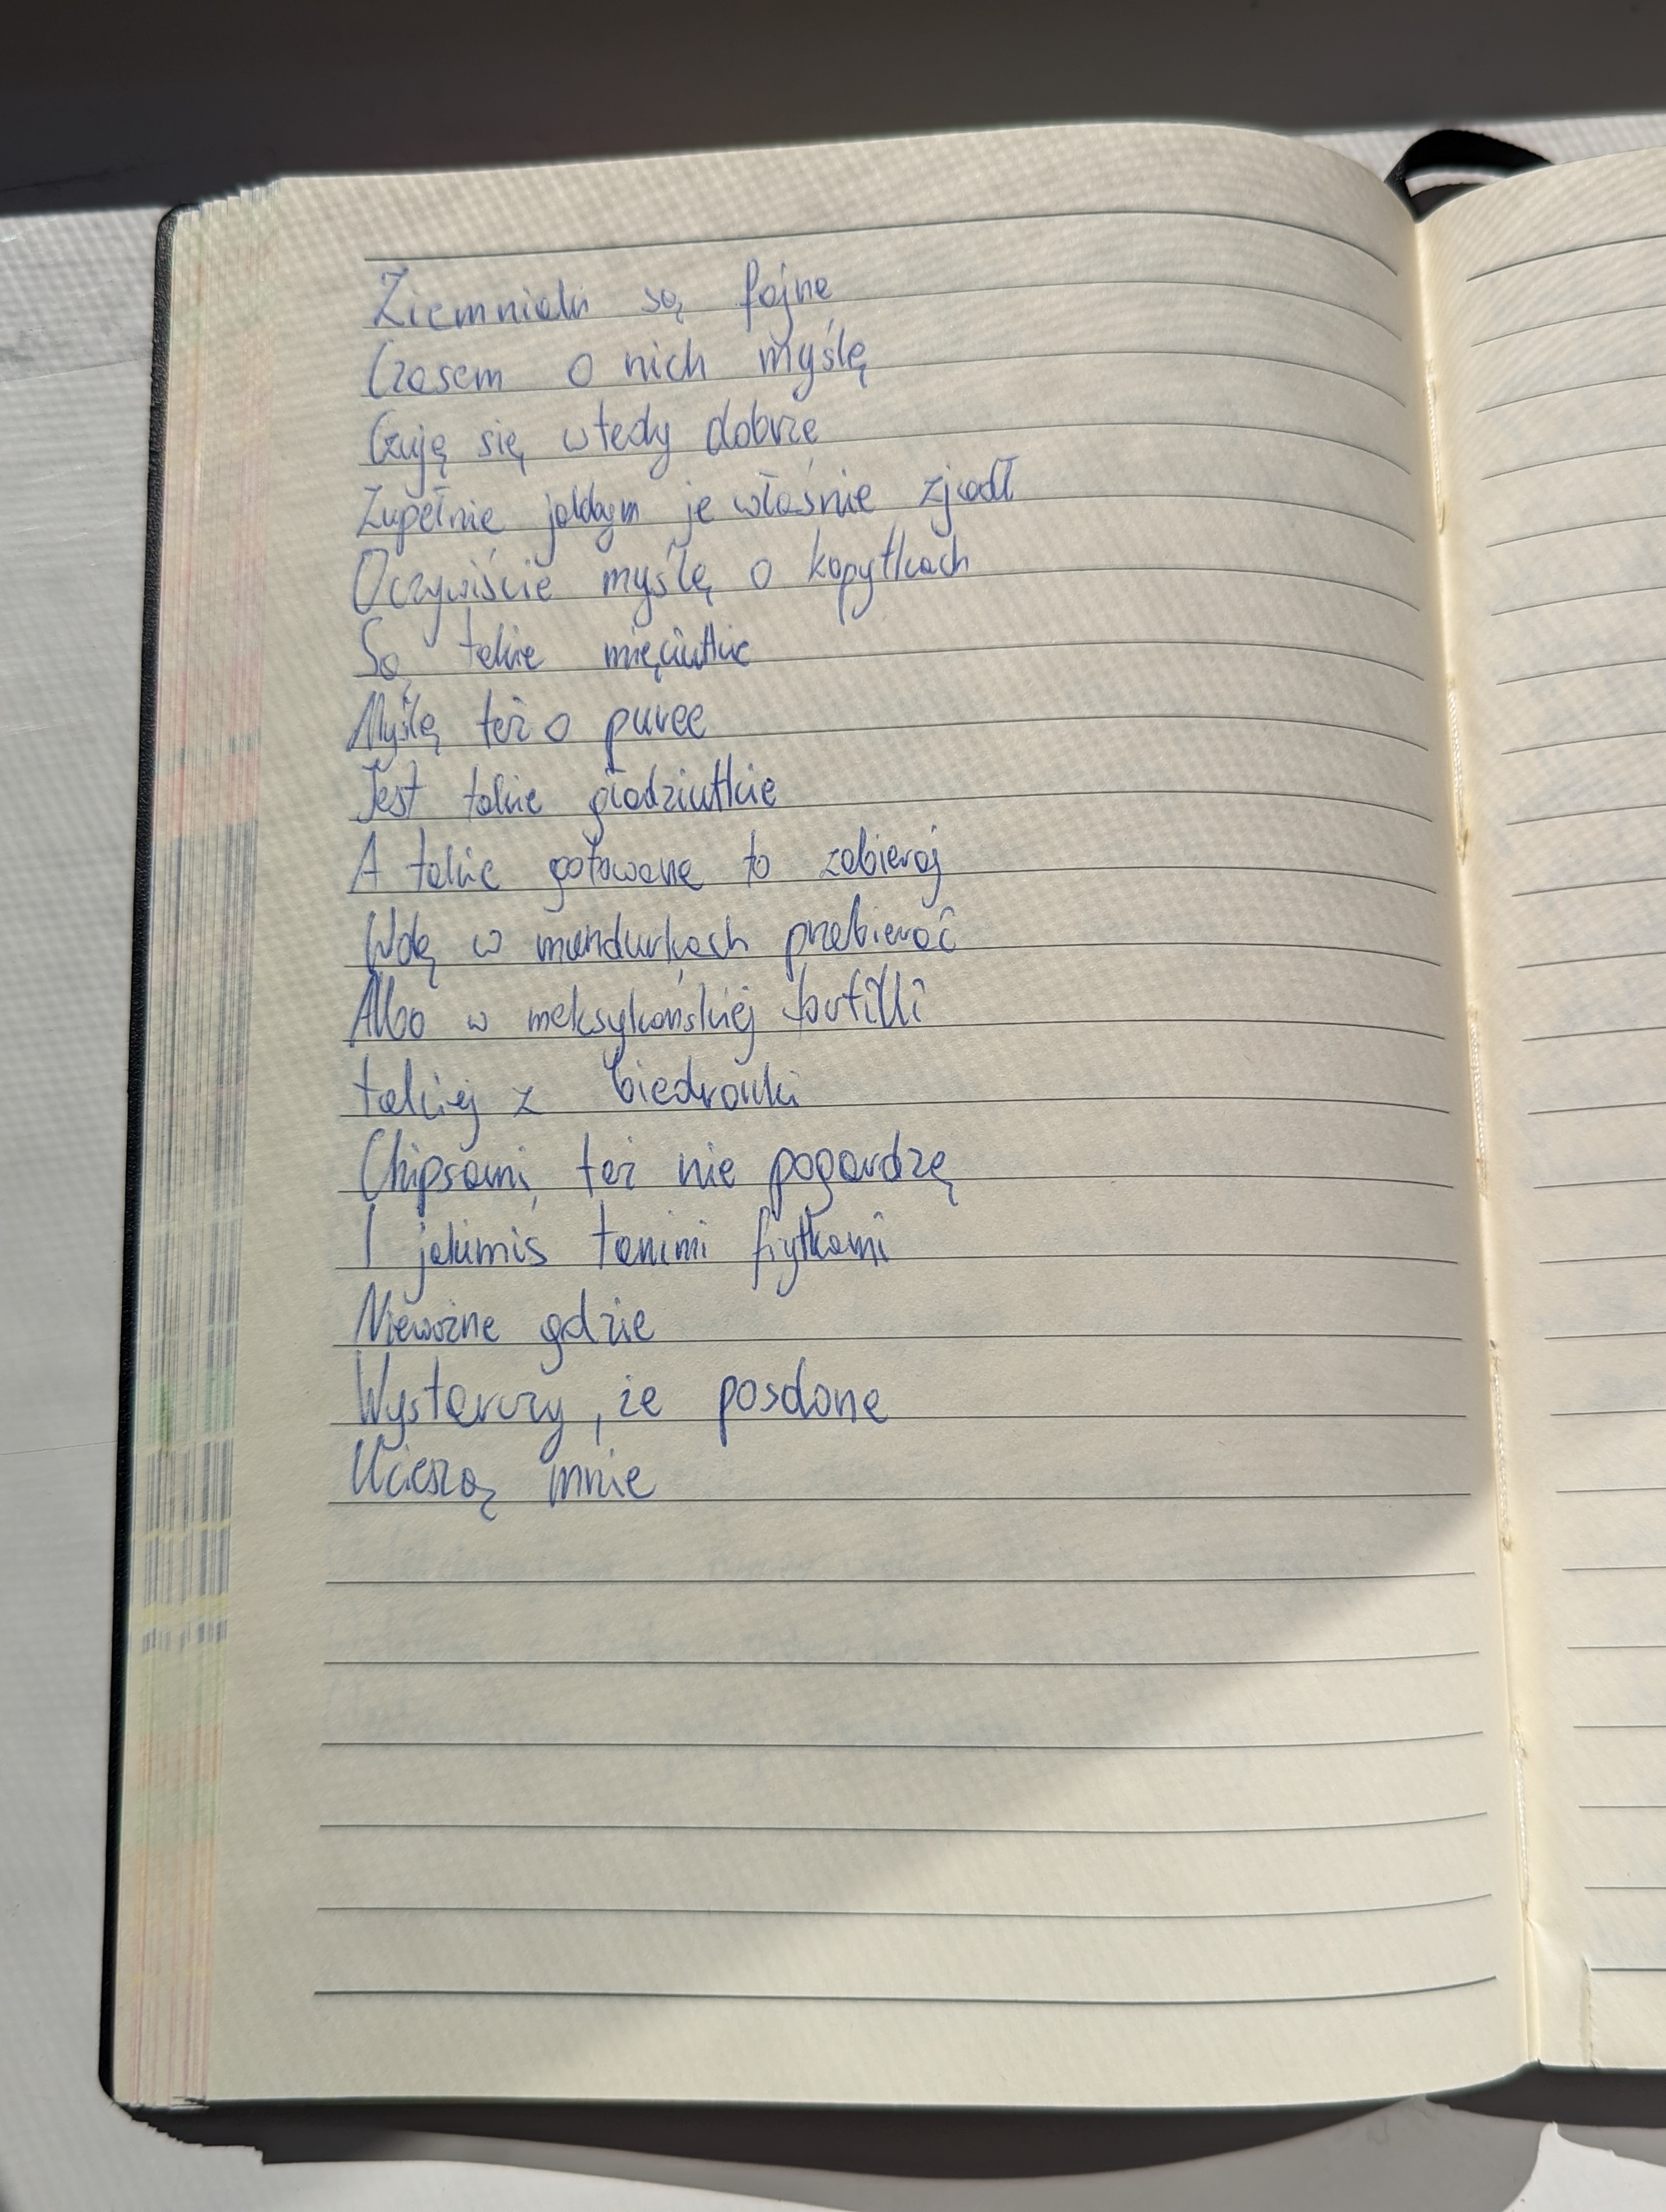 Ziemniaki są fajne
Czasem o nich myślę
Czuję się wtedy dobrze
Zupełnie jakbym je właśnie zjadł
Oczywiście myślę o kopytkach
Są takie mięciutkie
Myślę też o puree
Jest takie gładziutkie
A takie gotowane to zabieraj
Wolę w mundurkach przebierać
Albo w meksykańskiej tortilli
takiej z biedronki
Chipsami też nie pogardzę
I jakimiś tanimi frytkami
Nieważne gdzie
Wystarczy, że posolone
Ucieszą mnie